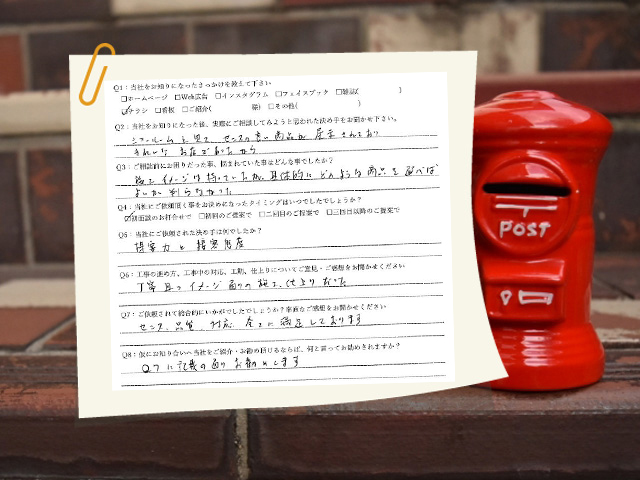 Q1：当社をお知りになったきっかけを教えて下さい
□ホームページ □Web広告 □インスタグラム □フェイスブック □雑誌( )
☑チラシ □看板 □ご紹介( 様) □その他( )
Q2：当社をお知りになった後、実際にご相談してみようと思われた決め手をお聞かせ下さい。
ショールームを見て、センスの良い商品が展示されており
きれいな お店であったから
Q3：ご相談前にお困りだった事、悩まれていた事はどんな事でしたか？
施工イメージは持っていたが、具体的にどのような商品を選べば
よいか判らなかった
Q4：当社にご依頼頂く事をお決めになったタイミングはいつでしたでしょうか？
☑初面談のお打合せで □初回のご提案で □二回目のご提案で □三回目以降のご提案で
Q5：当社にご依頼された決め手は何でしたか？
提案力と
Q6：工事の進め方、工事中の対応、工期、仕上りについてご意見・ご感想をお聞かせください
丁寧且つイメージ通りの施工、仕上りだった
Q7：ご依頼されて総合的にいかがでしたでしょうか？率直なご感想をお聞かせください
センス、品質、対応、全てに満足しております
Q8：仮にお知り合いへ当社をご紹介・お勧め頂けるならば、何と言ってお勧めされますか？
Q7に記載の通りお勧めします
POST